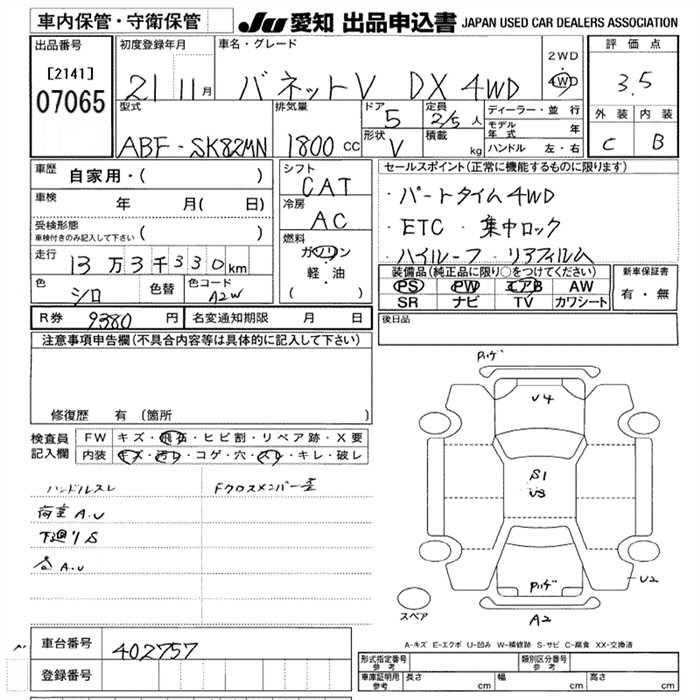 車内保管・守衛保管
JU 愛知 出品申込書 JAPAN USED CAR DEALERS ASSOCIATION
出品番号
[2141]
07065
初度登録年月
21 11月
車名・グレード
バネットV DX 4WD
2WD
4WD
評価点
3.5
外装 内装
C B
型式
ABF-SK82MN
排気量
1800 CC
ドア
5
形状
V
定員
2/5 人
積載
kg
ディーラー・並行
モデル年式 年
ハンドル 左・右
車歴 自家用・( )
車検 年 月( 日)
受検形態
車検付きのみ記入して下さい ( )
走行 13万3千330km
色 シロ 色替 色コード A2W
シフト
CAT
冷房
AC
燃料
ガソリン
軽・油
( )
セールスポイント(正常に機能するものに限ります)
・パートタイム4WD
・ETC ・集中ロック
・ハイルーフ ・リアフィルム
装備品(純正品に限り○をつけてください)
PS PW エアB AW
SR ナビ TV カワシート
新車保証書
有・無
R券 9380 円 名変通知期限 月 日
後日品
注意事項申告欄(不具合内容等は具体的に記入して下さい)
修復歴 有(箇所 )
検査員記入欄
FW キズ・飛石・ヒビ割・リペア跡・X要
内装 キズ・汚レ・コゲ・穴・スレ・キレ・破レ
ハンドルスレ
Fクロスメンバー歪
荷室A.U
下廻りS
A.U
ハゲ
U4
S1
U3
ハゲ
U2
A2
スペア
A-キズ E-エクボ U-凹み W-補修跡 S-サビ C-腐食 XX-交換済
車台番号 402757
登録番号
形式指定番号 参考
類別区分番号 参考
車庫証明用 参考 長さ cm 幅 cm 高さ cm